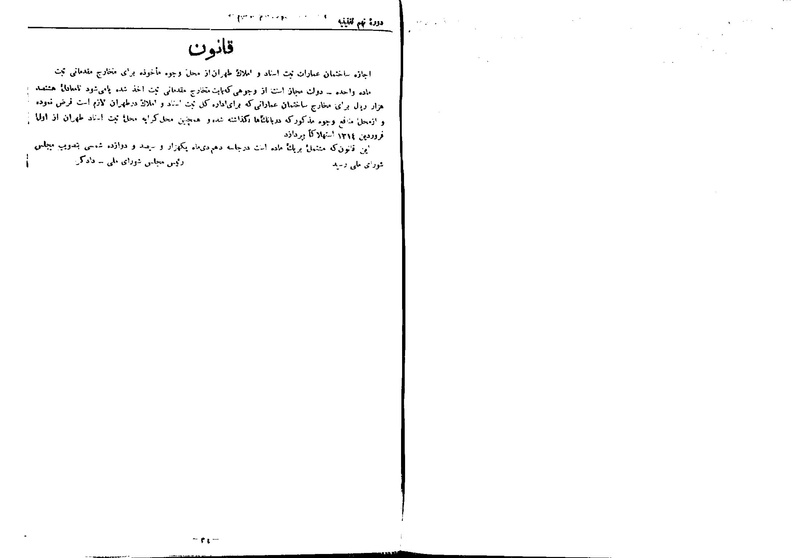 دورهٔ نهم تقنینیه
قانون
اجازه ساختمان عمارات ثبت اسناد و املاک طهران از محل وجوه مأخوذه برای مخارج مقدماتی ثبت
ماده واحده ـ دولت مجاز است از وجوهی که بابت مخارج مقدماتی ثبت اخذ شده یا می‌شود تا معادل هشتصد
هزار ریال برای مخارج ساختمان عماراتی که برای اداره کل ثبت اسناد و املاک در طهران لازم است قرض نموده
و از محل منافع وجوه مذکور که در بانک‌ها گذاشته شده و همچنین محل کرایه محل ثبت اسناد طهران از اول
فروردین ۱۳۱۴ استهلاکاً بپردازد
این قانون که مشتمل بر یک ماده است در جلسه دهم دی ماه یکهزار و سیصد و دوازده شمسی بتصویب مجلس
شورای ملی رسید
رئیس مجلس شورای ملی ـ دادگر
ـ ۳٤ ـ